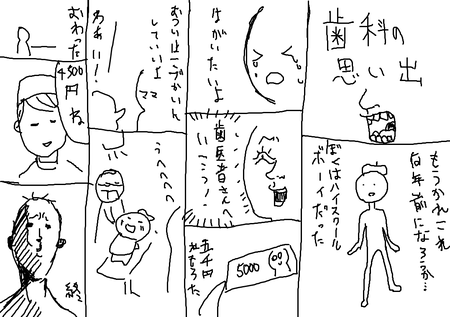 歯科の
思い出
もうかれこれ
何年前になろうか…
ぼくはハイスクール
ボーイだった
はがいたいよ
歯医者さんへ
いこうっ!
五千円
5000
していいよ
ママ
わあい!
うへへへへ
おわった
4500
円ね
終